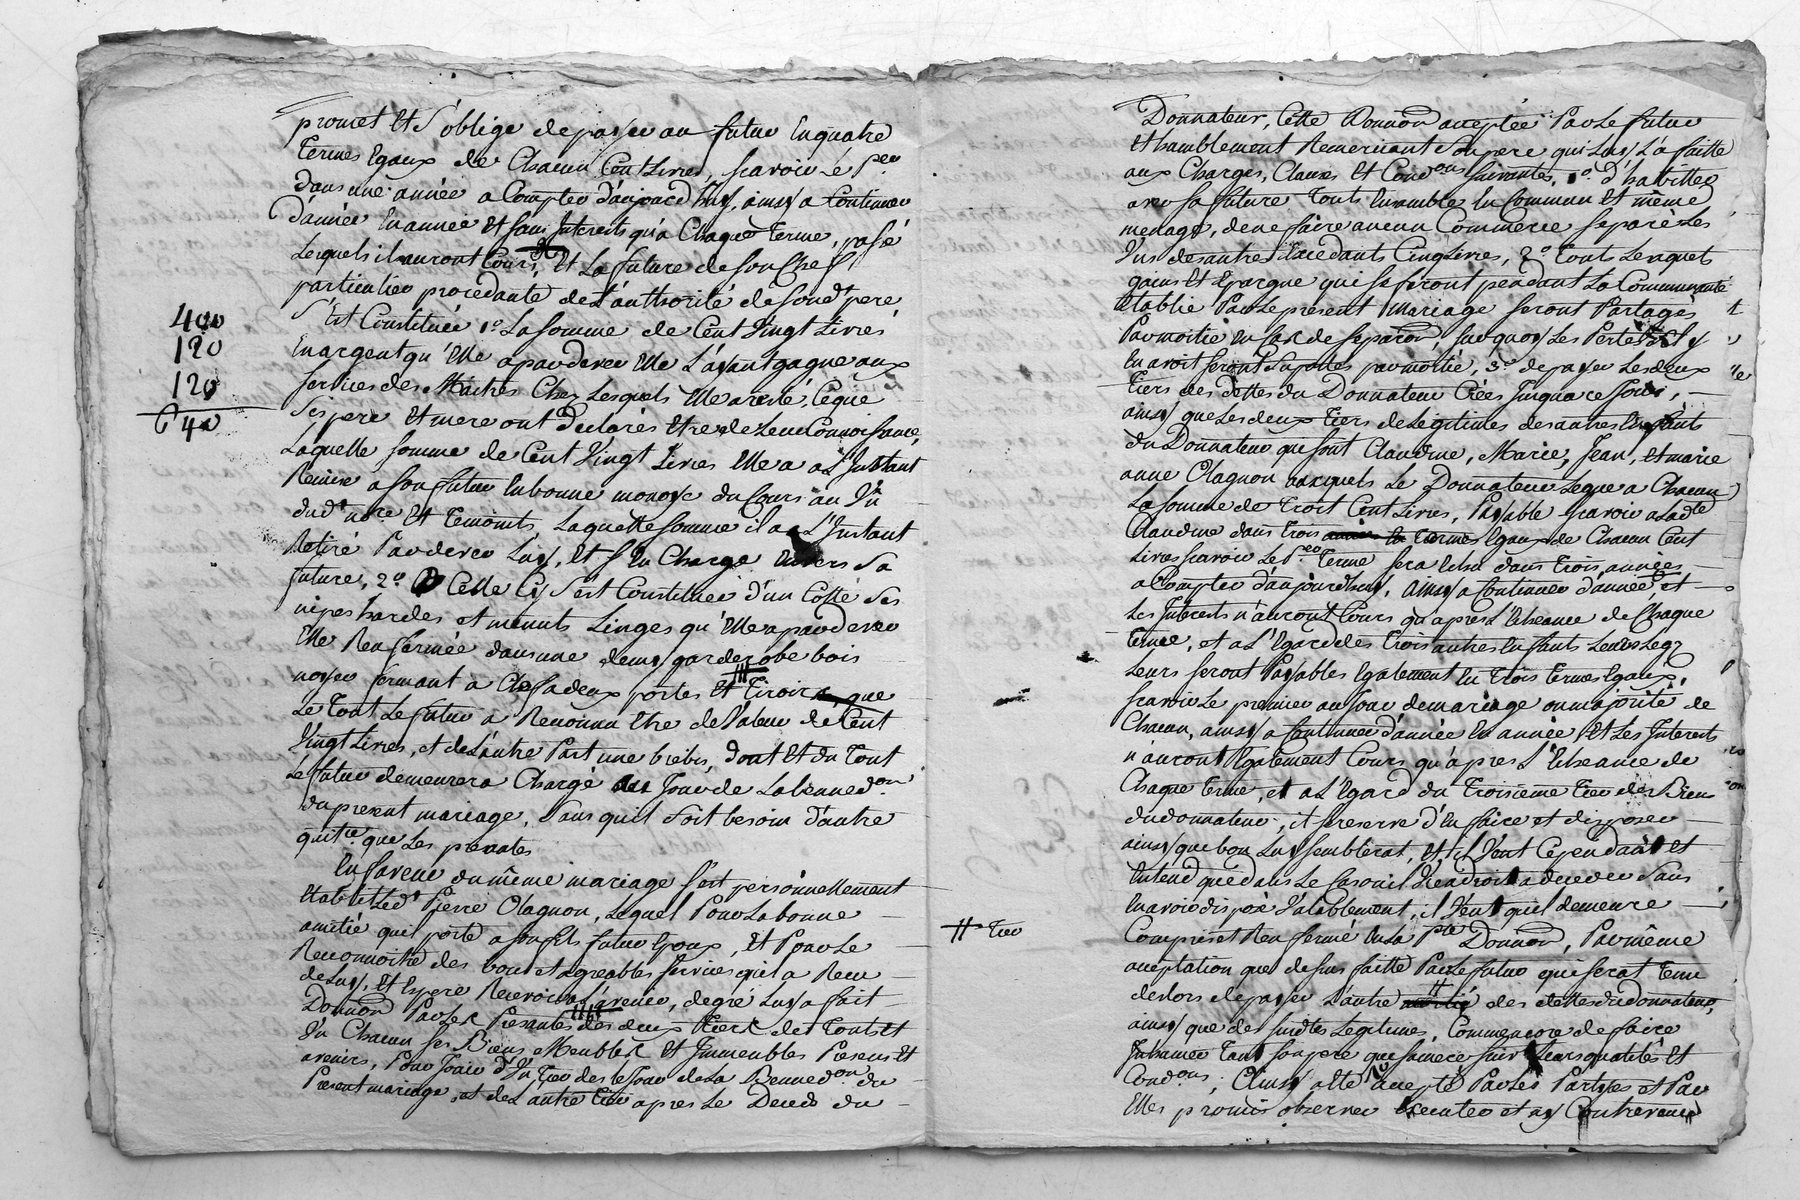 promet et s'oblige de payer au futur en quatre
termes egaux de Chacun Cent Livres, scavoir Le Per
dans une année a Compter d'aujourd'huy, ainsy a Continuer
d'année en année et sans Interests qu'a Chaque terme, passé
Lesquels ils auront Cours, et La future de son Chef
particulier procedante de L'authorité de sond. pere
400
S'est Constituée 1° La somme de Cent Vingt Livres
120
En argent qu'elle a par devers elle L'ayant gagné aux
120
services des Maitres Chez Lesquels elle a resté, Ce que
640
Ses pere et mere ont declarés etre de Leur Connoissance,
Laquelle somme de Cent Vingt Livres elle a a L'Instant
Remise a son futur en bonne monoye du Cours au Vu
dud. nore et temoints, Laquelle somme il a a L'Instant
Retiré Par devers Luy, et s'en Charge envers Sa
future, 2° Celle Cy S'est Constituée d'un Cotté Ses
nipes hardes et menuts Linges qu'elle a par devers
elle Renfermée dans une demy garderobe bois
noyer fermant a Clef a deux portes et tiroir, que
Le tout Le futur a Reconnu etre de Valeur de Cent
Vingt Livres, et de L'autre Part une brebis, dont et du tout
Le futur demeurera Chargé au Jour de La benned.on
du present mariage, Sans quil soit besoin d'autre
quit.ce que Les presentes
En faveur du même mariage s'est personnellement
etabli Led. Pierre Olagnon, Lequel Pour La bonne
amitié quil porte a son fils futur Epoux, et Pour Le
Reconnoitre des bons et agreables services quil a Reçu
de Luy, et Espere Recevoir a L'avenir, de gré Luy a fait
Donnaon Par Les Presentes des deux tiers de touts et
Un Chacun ses Biens Meubles et Immeubles Presents et
avenirs, Pour Jouir d'Un tier des le Jour de La Benned.on du
Present mariage, et de L'autre tier apres Le Deced du
Donnateur, Cette Donnaon acceptée Par Le futur
et humblement Remerciant Son pere qui Luy L'a faitte
aux Charges, Clauses et Cond.ons suivantes, 1°. d'habitter
avec sa future touts Ensemble En Commun et même
menage, de ne faire aucun Commerce separé Les
Uns des autres Excedants Cinq Livres, 2° touts Les aquets
gains et Epargne qui se feront pendant La Communauté
etablie Par Le present Mariage seront Partagés
Par moitié en Cas de separaon, sur quoy Les Pertes s'il y
En avoit seront Suportés par moitié, 3° de payer Les deux
tiers des dettes du Donnateur Crées Jusqua ce Jour,
ainsy que Les deux tiers de Legitimes des autres Enfants
du Donnateur que sont Claudine, Marie, Jean, et marie
anne Olagnon auxquels Le Donnateur Legue a Chacun
La somme de trois Cent Livres, Payable scavoir a Lad.te
Claudine dans trois années en termes Egaux de Chacun Cent
Livres scavoir Le Per terme sera Echu dans trois années
a Compter d'aujourdhuy, ainsy a Continuer d'année, et
Les Interests n'auront Cours qu'apres L'echeance de Chaque
terme, et a L'Egard des trois autres Enfants Leurs Leg
Leurs seront Payables Egalement En trois termes Egaux,
scavoir Le premier au Jour de mariage ou majorité de
Chacun, ainsy a Continuer d'année en année et Les Interests
n'auront Egalement Cours qu'apres L'echeance de
Chaque terme, et a L'Egard du troisième tier des Biens
du donnateur, il se reserve d'En faire et disposer
ainsy que bon Luy semblerat, et il Veut Cependant et
Entend que dans Le Cas ou il Viendroit a deceder Sans
En avoir disposé Valablement, il Veut quil demeure
# tier
Compris et Renfermé en La pte Donnaon, Par même
aceptation que dessus faitte Par Le futur qui serat tenu
deslors de payer L'autre moitié # des dettes du donnateur,
ainsy que de susdites Legitimes, Comm'encore de faire
Inhumer tant son pere que sa mere suiv. Leurs qualités et
Cond.ons; Ainsy a eté accepté Par Les Parties et Par
Elles promis observer executer et n'y Contrevenir